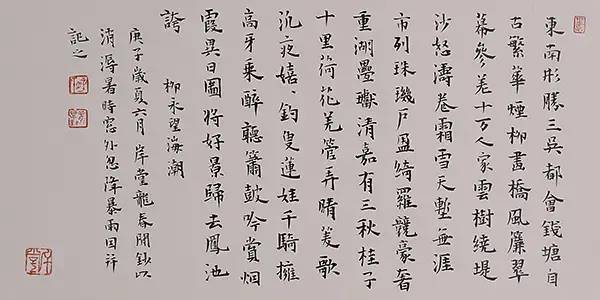 東南形勝三吳都會錢塘自
古繁華煙柳畫橋風簾翠
幕參差十万人家雲樹繞堤
沙怒濤卷霜雪天塹無涯
市列珠璣戶盈綺羅競豪奢
重湖疊巘清嘉有三秋桂子
十里荷花羌管弄晴菱歌
泛夜嬉、釣叟蓮娃千騎擁
高牙乘醉聽簫鼓吟賞烟
霞異日圖將好景歸去鳳池
誇 柳永望海潮
庚子歲夏六月岸堂龍春開鈔以
消溽暑時窓外忽降暴雨因并
記之